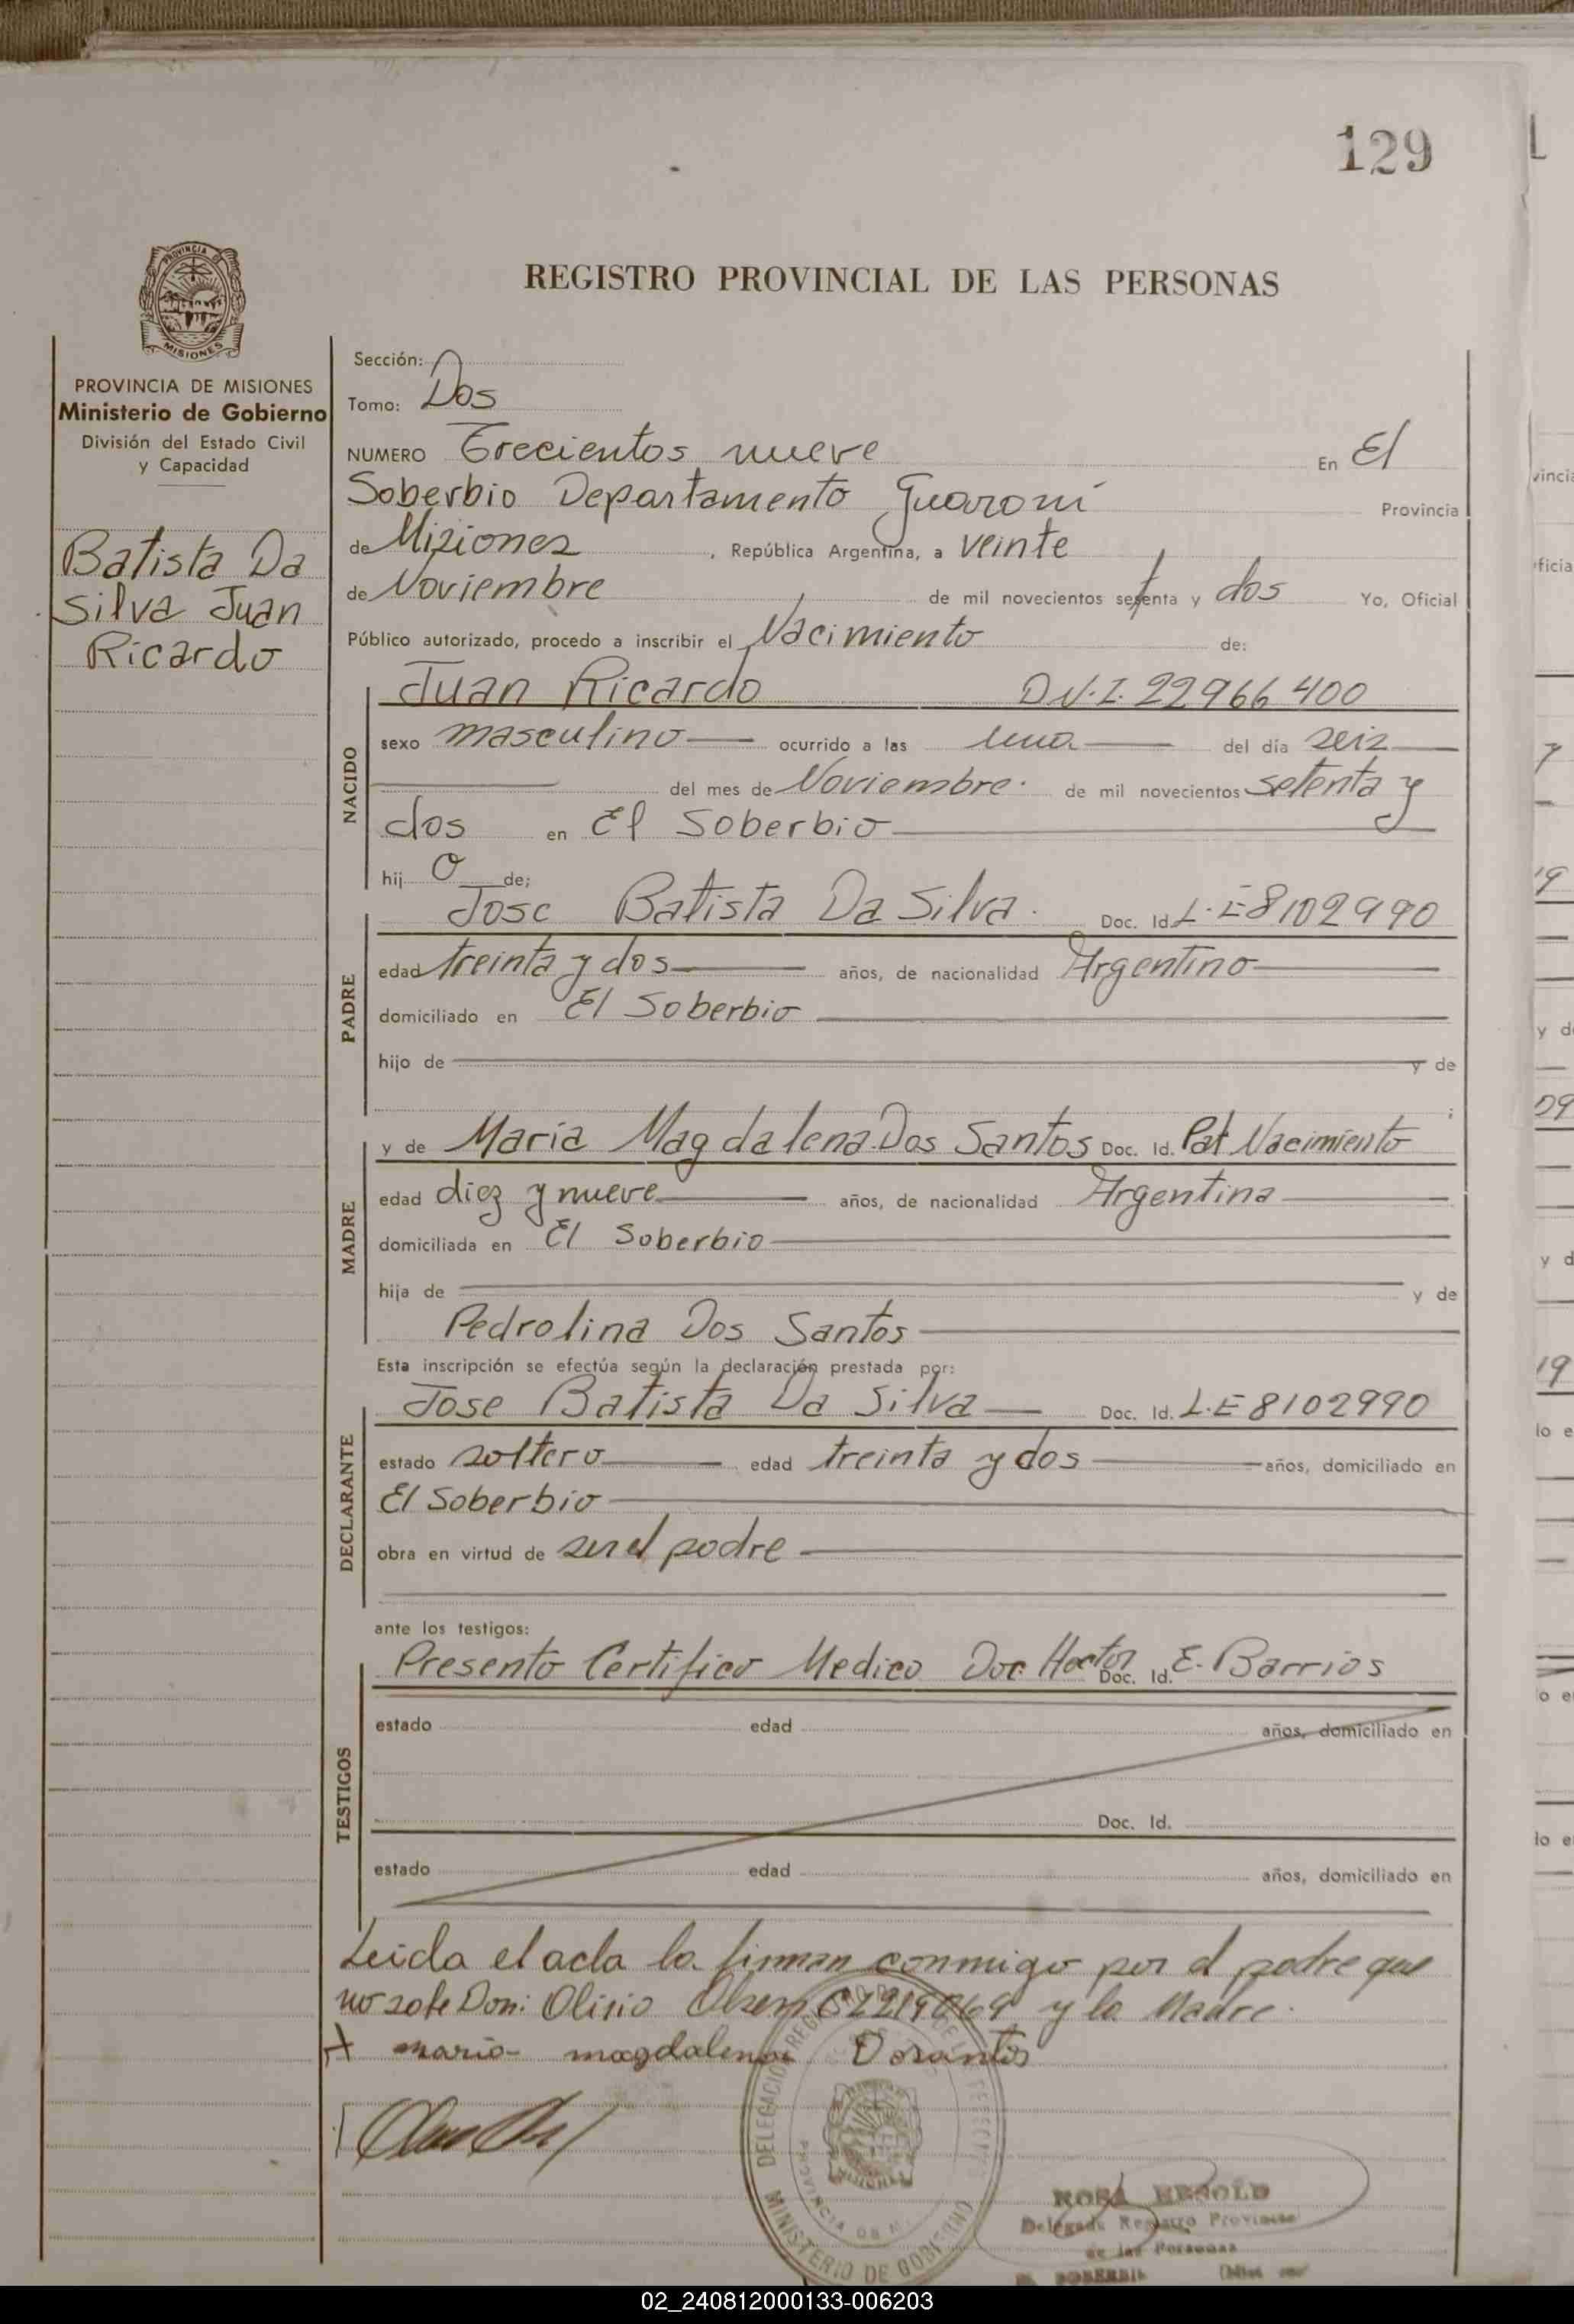 129
REGISTRO PROVINCIAL DE LAS PERSONAS
PROVINCIA DE MISIONES
Ministerio de Gobierno
División del Estado Civil
y Capacidad
Batista Da
Silva Juan
Ricardo
Sección:
Tomo: Dos
NUMERO Trecientos nueve En El
Soberbio Departamento Guaraní Provincia
de Misiones, República Argentina, a veinte
de Noviembre de mil novecientos setenta y dos Yo, Oficial
Público autorizado, procedo a inscribir el Nacimiento de:
NACIDO
Juan Ricardo D.N.I. 22966400
sexo masculino ocurrido a las una del día seis
del mes de Noviembre. de mil novecientos setenta y
dos en El Soberbio
hijo de;
PADRE
Jose Batista Da Silva. Doc. Id. L.E 8102990
edad treinta y dos años, de nacionalidad Argentino
domiciliado en El Soberbio
hijo de y de
;
MADRE
y de Maria Magdalena Dos Santos Doc. Id. Pat Nacimiento
edad diez y nueve años, de nacionalidad Argentina
domiciliada en El Soberbio
hija de y de
Pedrolina Dos Santos
Esta inscripción se efectúa según la declaración prestada por:
DECLARANTE
Jose Batista Da Silva Doc. Id. L.E 8102990
estado soltero edad treinta y dos años, domiciliado en
El Soberbio
obra en virtud de ser el padre
ante los testigos:
TESTIGOS
Presento Certifico Medico Doc. Hector Doc. Id. E. Barrios
estado edad años, domiciliado en
Doc. Id.
estado edad años, domiciliado en
Leida el acta la firman conmigo por el padre que
no sabe Don: Olisio y la Madre.
+ maria magdalena Dosantos
DELEGACION REGISTRO
PROVINCIA DE
MINISTERIO DE GOBIERNO
ROSA
Delegada Registro Provincial
de las Personas
EL SOBERBIO
02_240812000133-006203